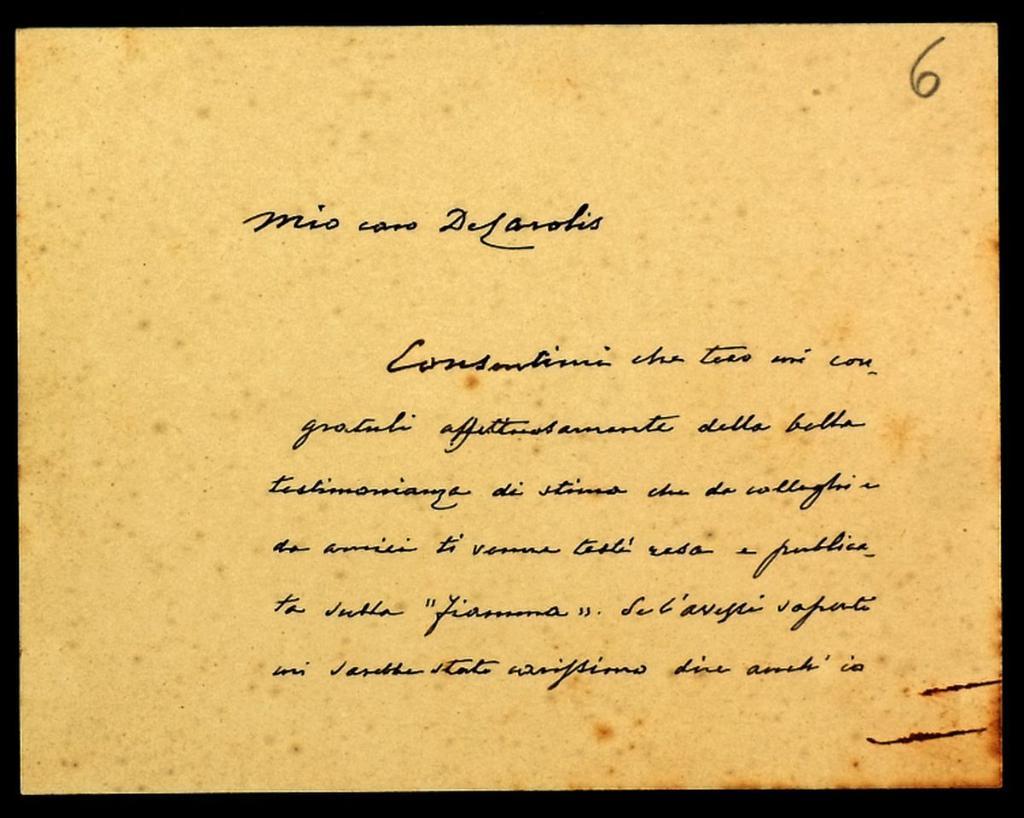 6
Mio caro De Carolis
Consentimi che teco mi con-
gratuli affettuosamente della bella
testimonianza di stima che da colleghi e
da amici ti venne testé resa e pubblica-
ta sulla "Fiamma". Se l'avessi saputo
mi sarebbe stato carissimo dire anch'io